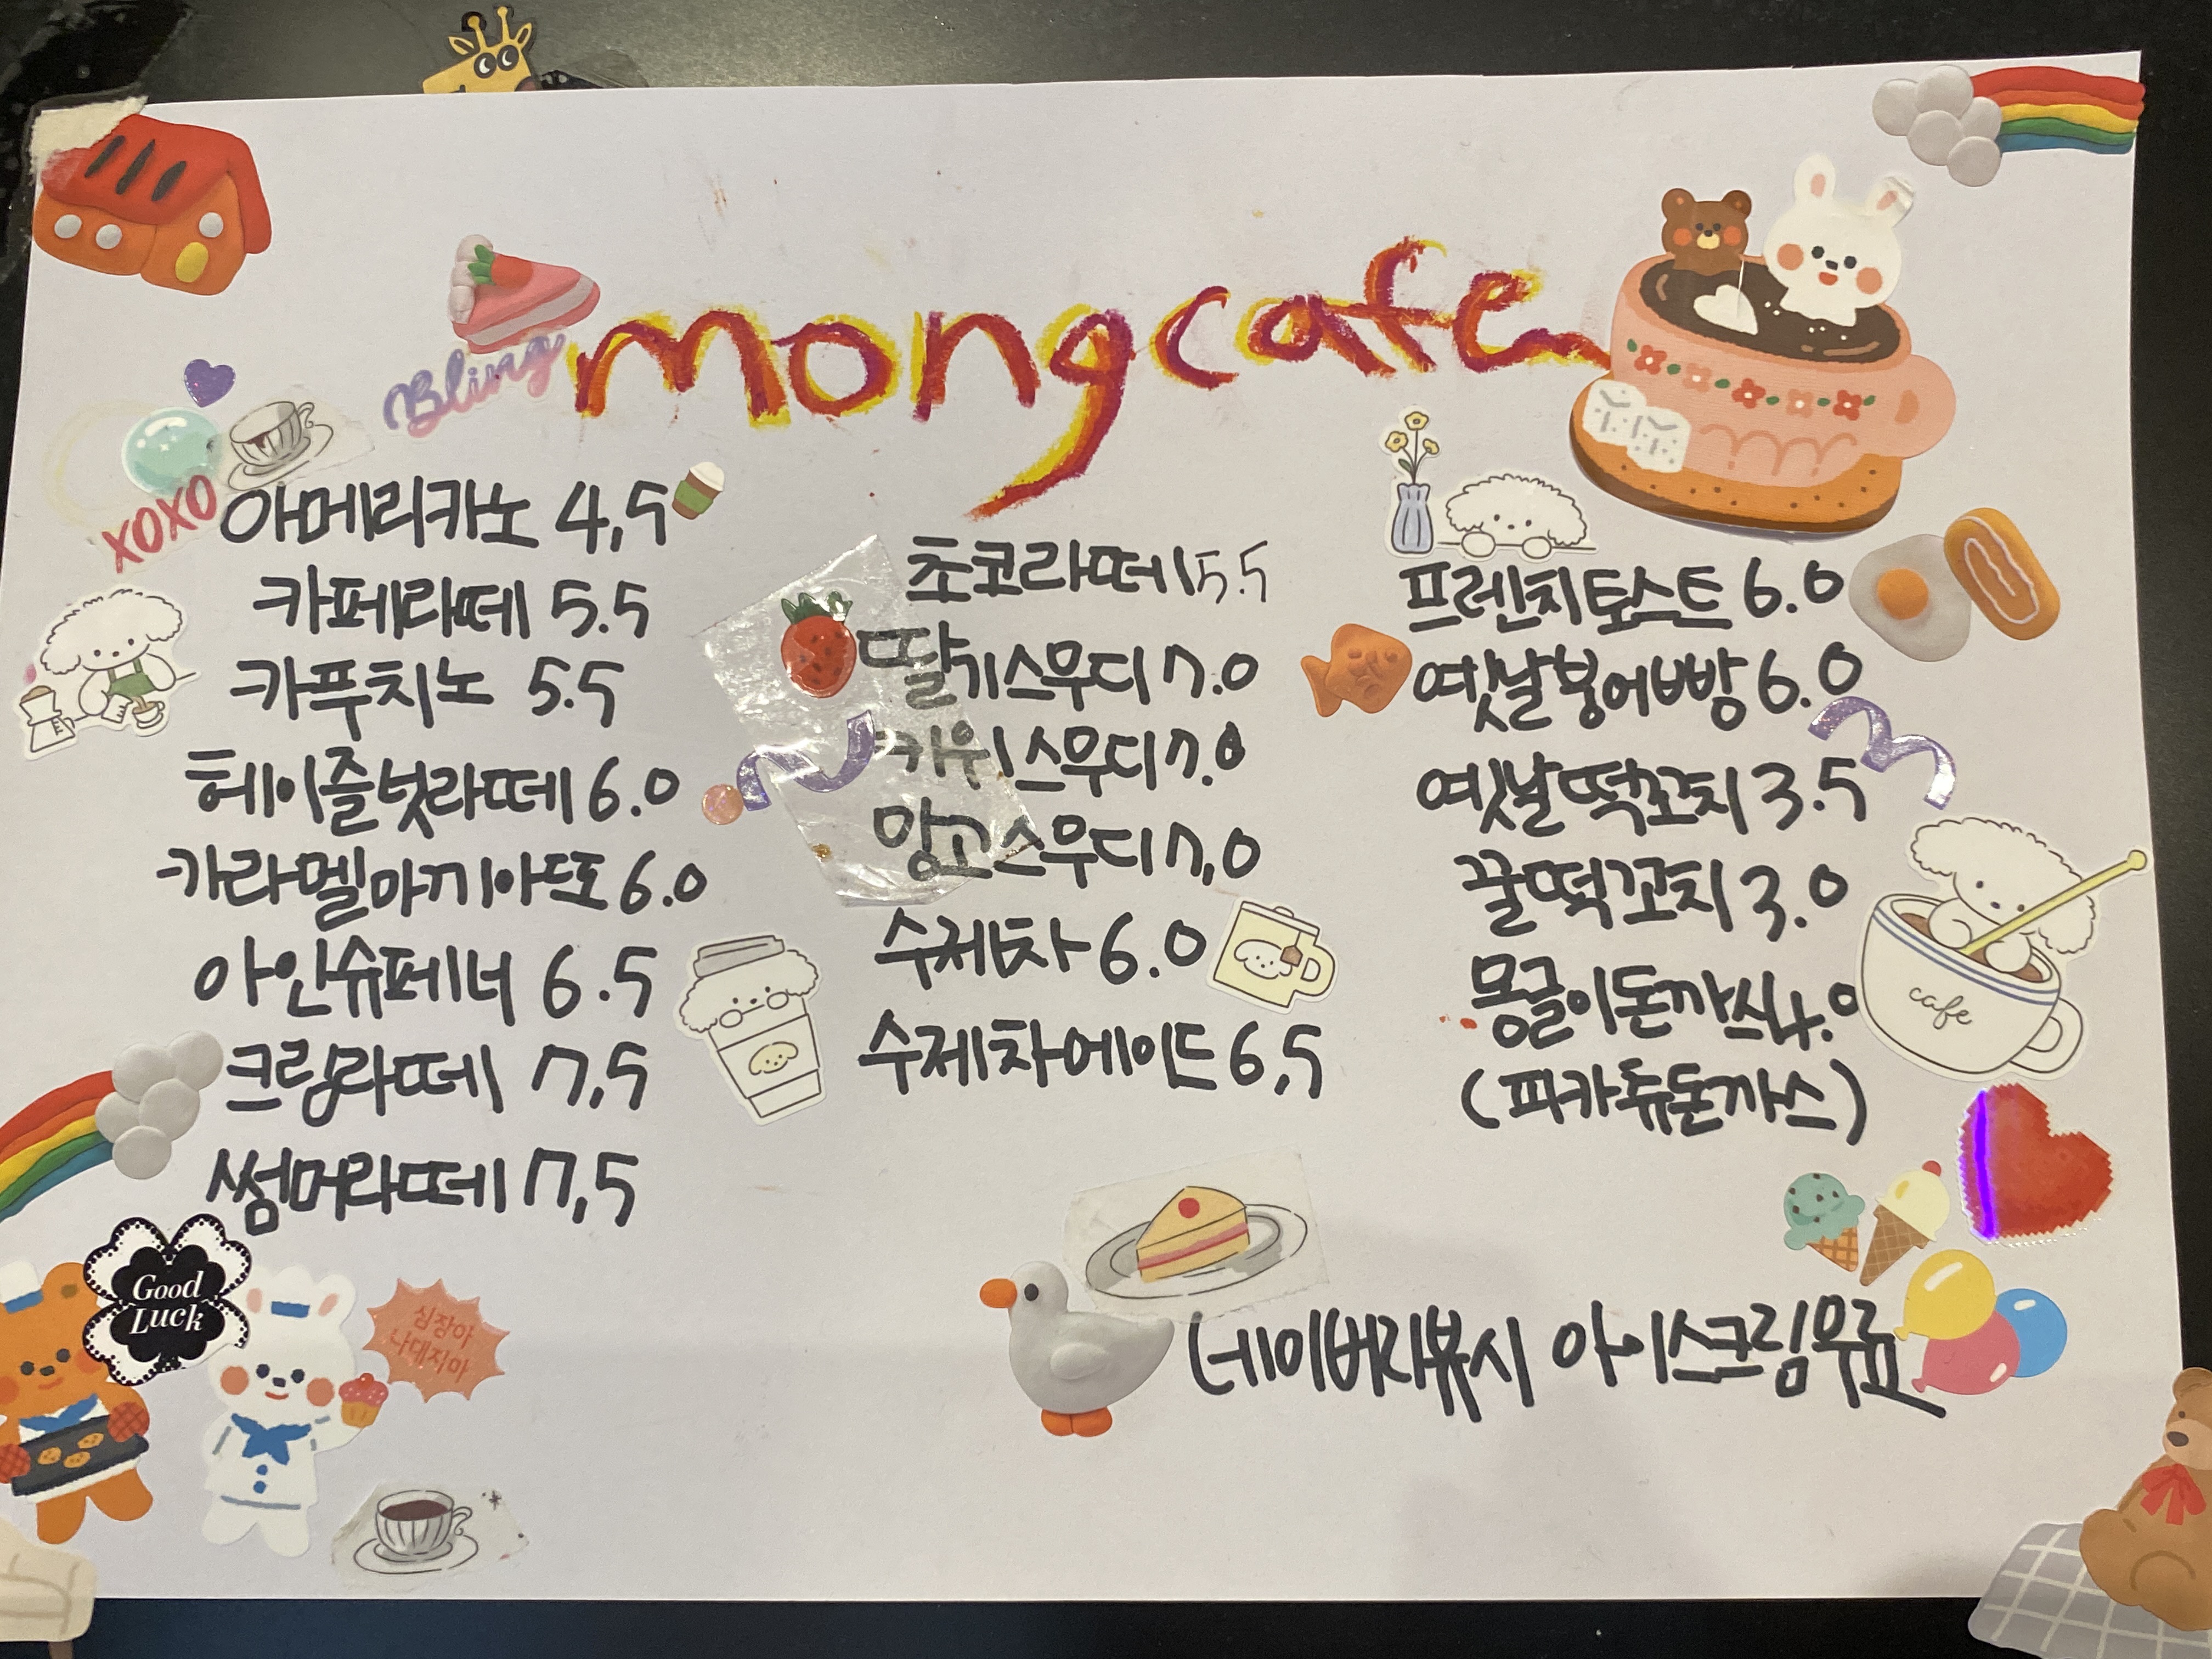 mongcafe
Bling
XOXO
아메리카노 4,5
카페라떼 5.5
카푸치노 5.5
헤이즐넛라떼 6.0
카라멜마끼아또 6.0
아인슈페너 6.5
크림라떼 7,5
썸머라떼 7,5
초코라떼 5.5
딸기스무디 7.0
키위스무디 7.0
망고스무디 7,0
수제차 6.0
수제차에이드 6,5
프렌치토스트 6.0
옛날붕어빵 6.0
옛날떡꼬치 3.5
꿀떡꼬치 3.0
몽글이돈까스 4.0
(피카츄돈까스)
cafe
Good
Luck
심장아
나대지마
네이버리뷰시 아이스크림무료